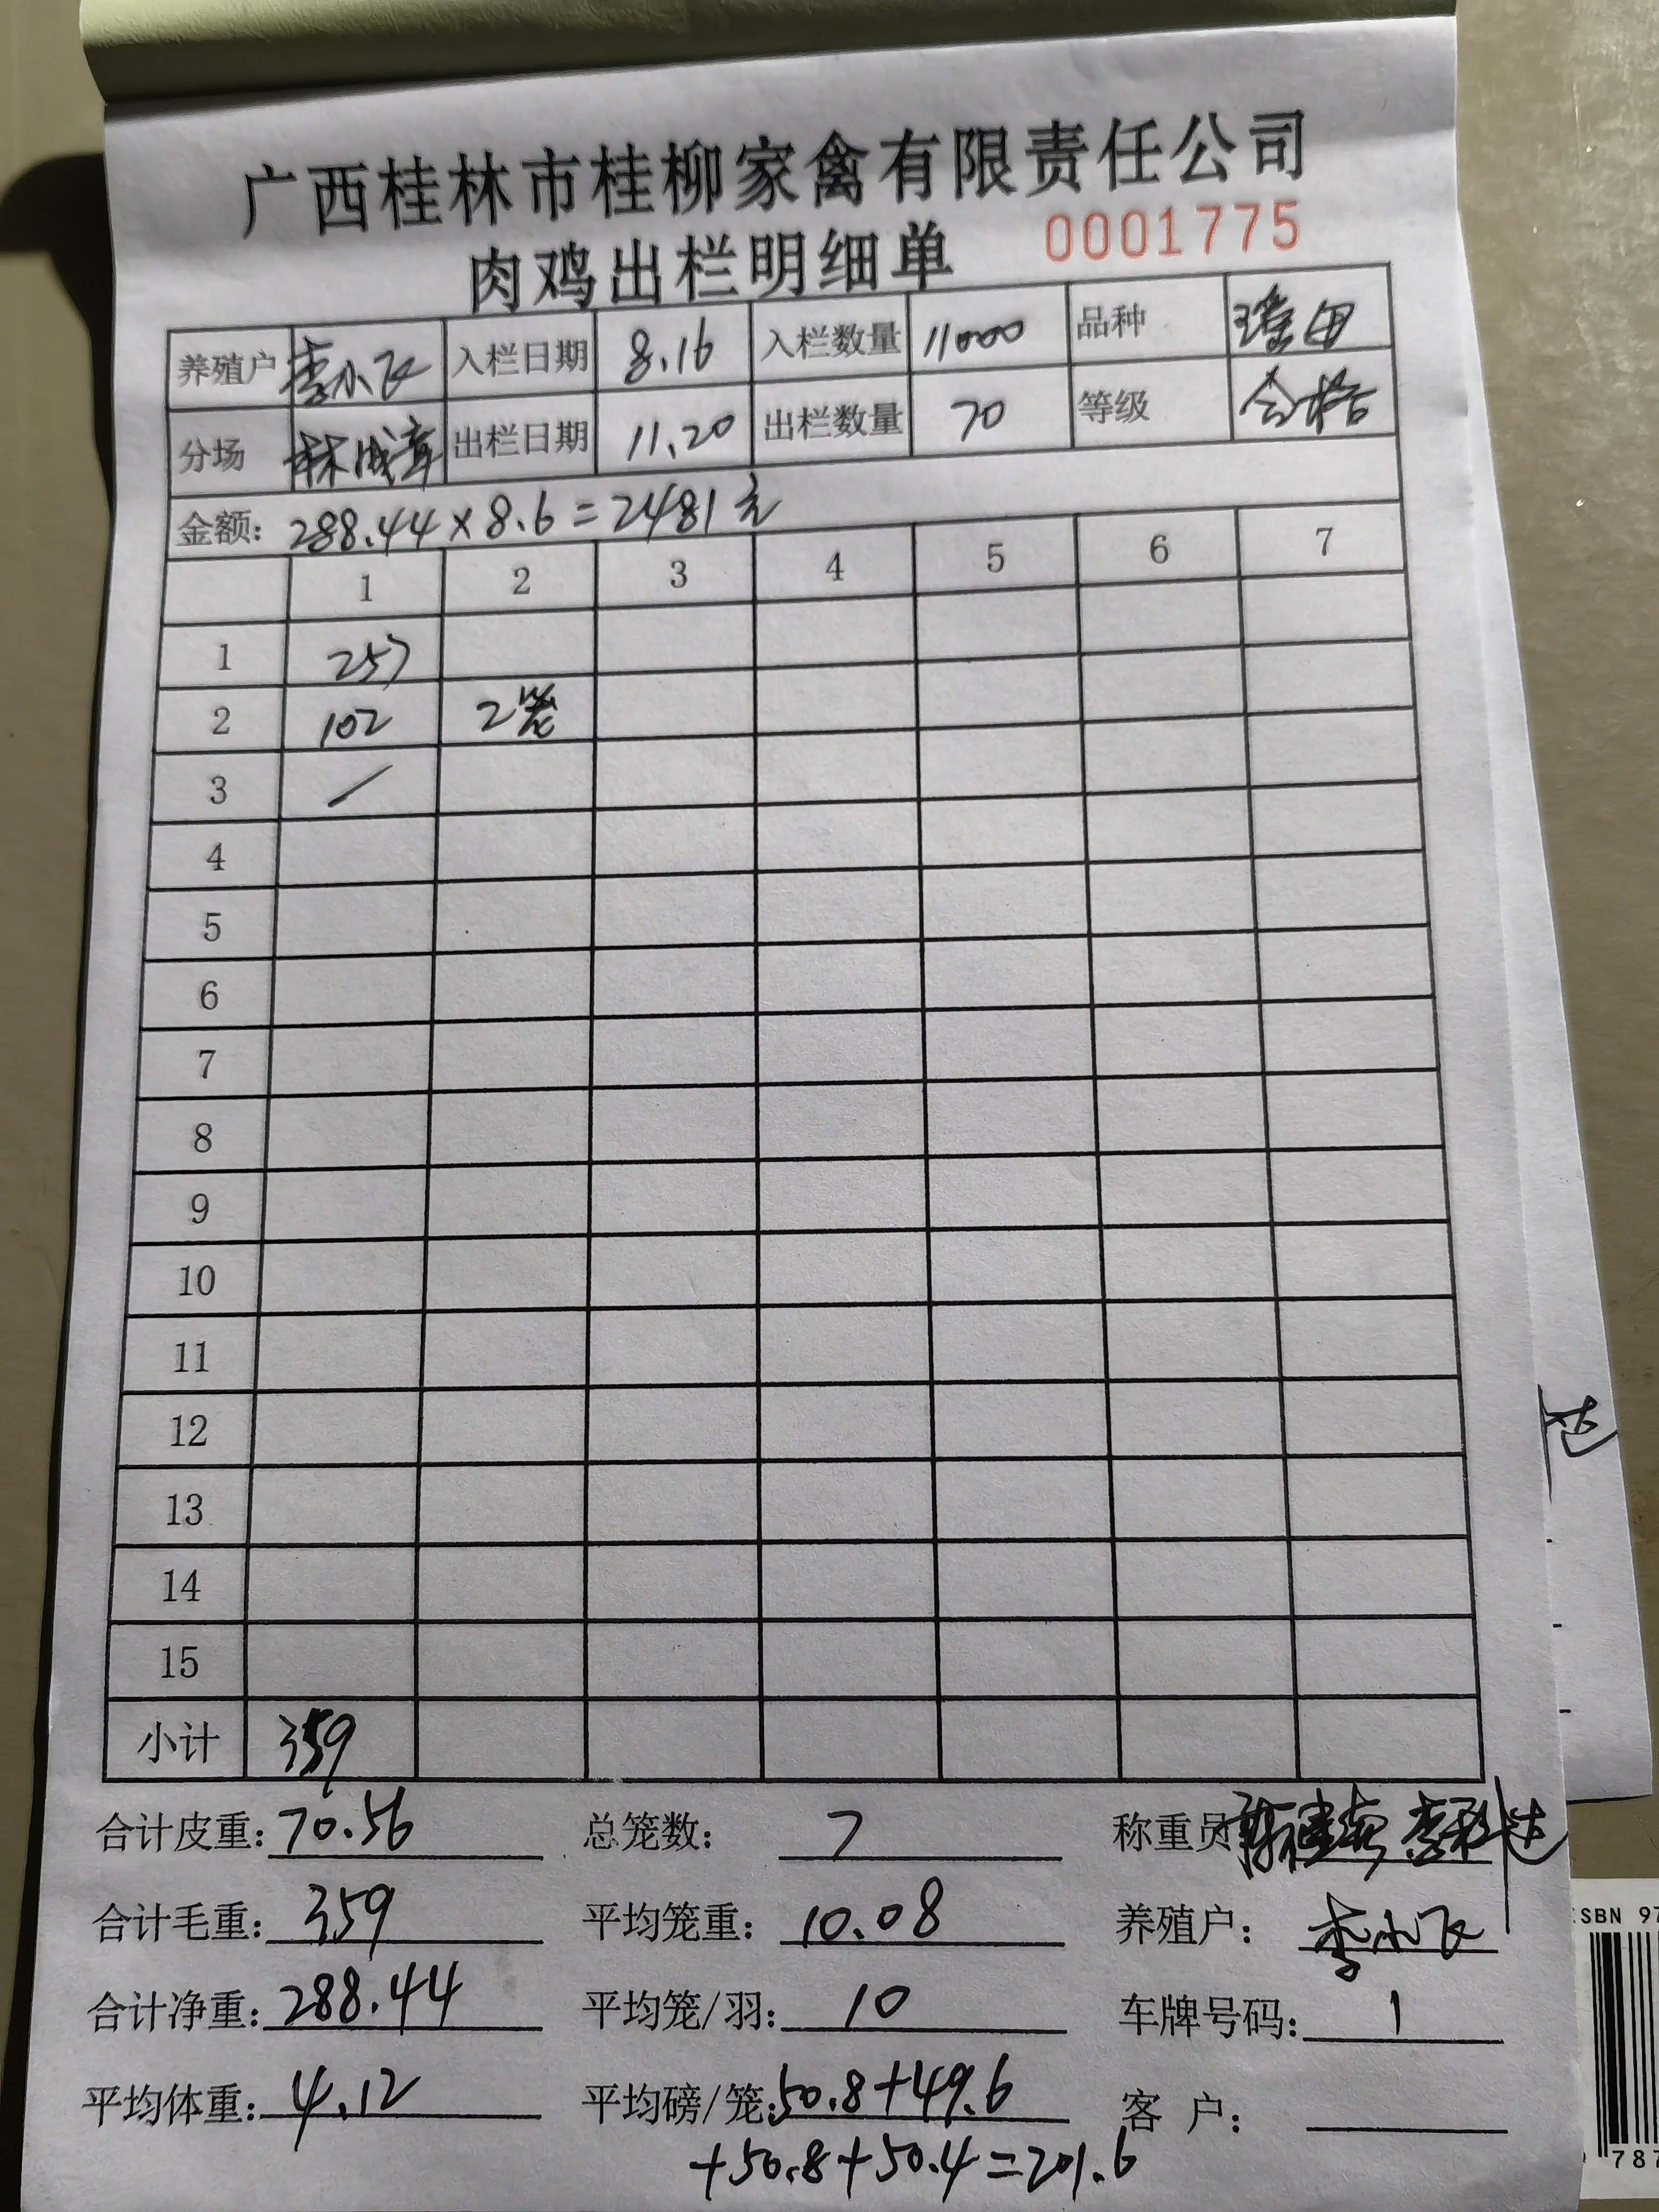 广西桂林市桂柳家禽有限责任公司
肉鸡出栏明细单 0001775
养殖户 李小飞 入栏日期 8.16 入栏数量 11000 品种 瑶
分场 林成章 出栏日期 11.20 出栏数量 70 等级 合格
金额: 288.44×8.6=2481元
1 2 3 4 5 6 7
1 257
2 102 2笼
3 /
4
5
6
7
8
9
10
11
12
13
14
15
小计 359
合计皮重: 70.56 总笼数: 7 称重员
合计毛重: 359 平均笼重: 10.08 养殖户: 李小飞
合计净重: 288.44 平均笼/羽: 10 车牌号码: 1
平均体重: 4.12 平均磅/笼: 50.8+49.6 客 户:
+50.8+50.4=201.6
ISBN 97
787